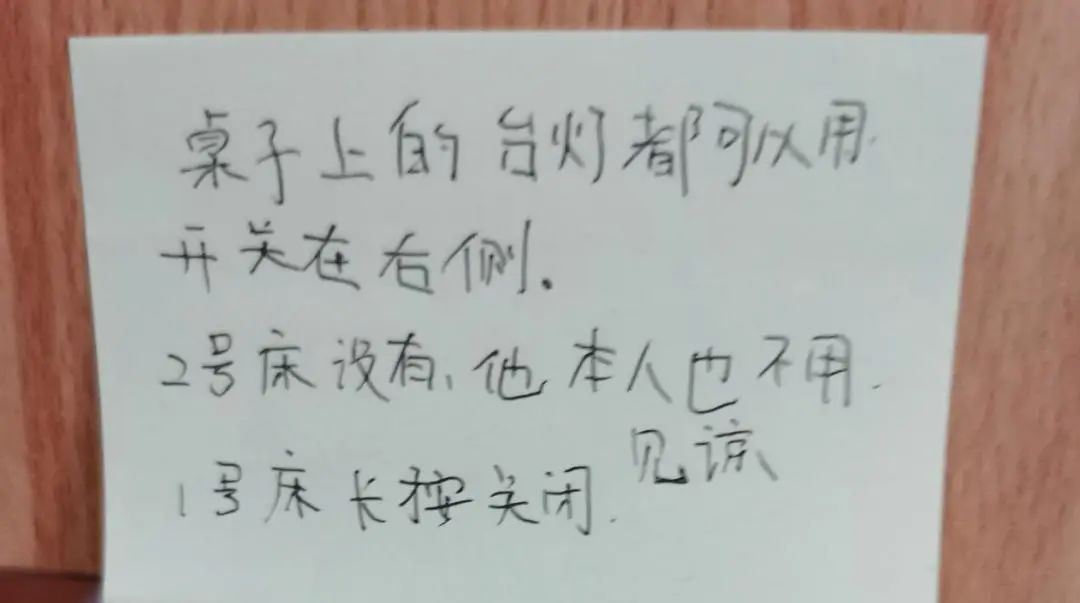 桌子上的台灯都可以用.
开关在右侧.
2号床没有、他本人也不用.
见谅
1号床长按关闭.